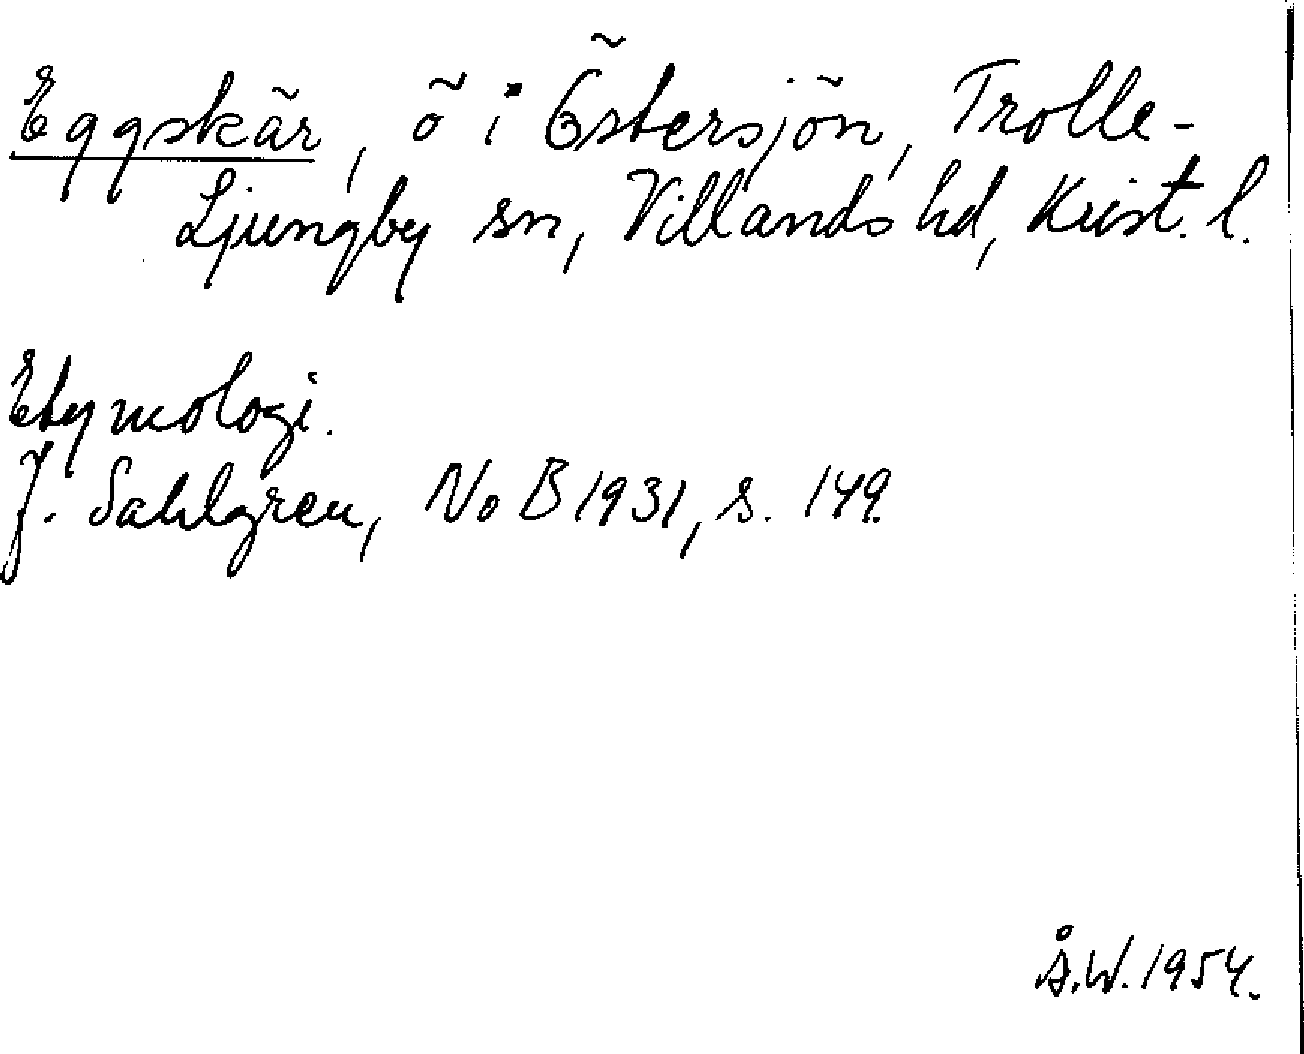 Eggskär, ö i Östersjön, Trolle-
Ljungby sn, Villands hd, Krist. l.
Etymologi.
J. Sahlgren, NoB 1931, s. 149.
Å.W. 1954.